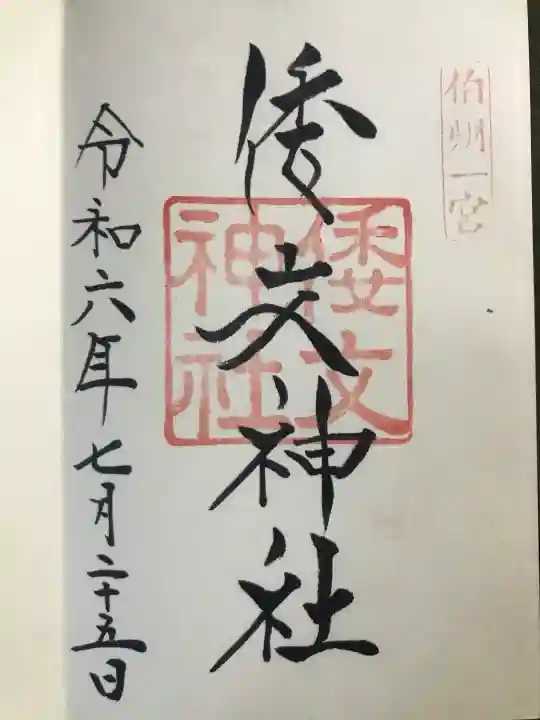 伯耆一宮
倭文神社
倭文神社
令和六年七月二十五日